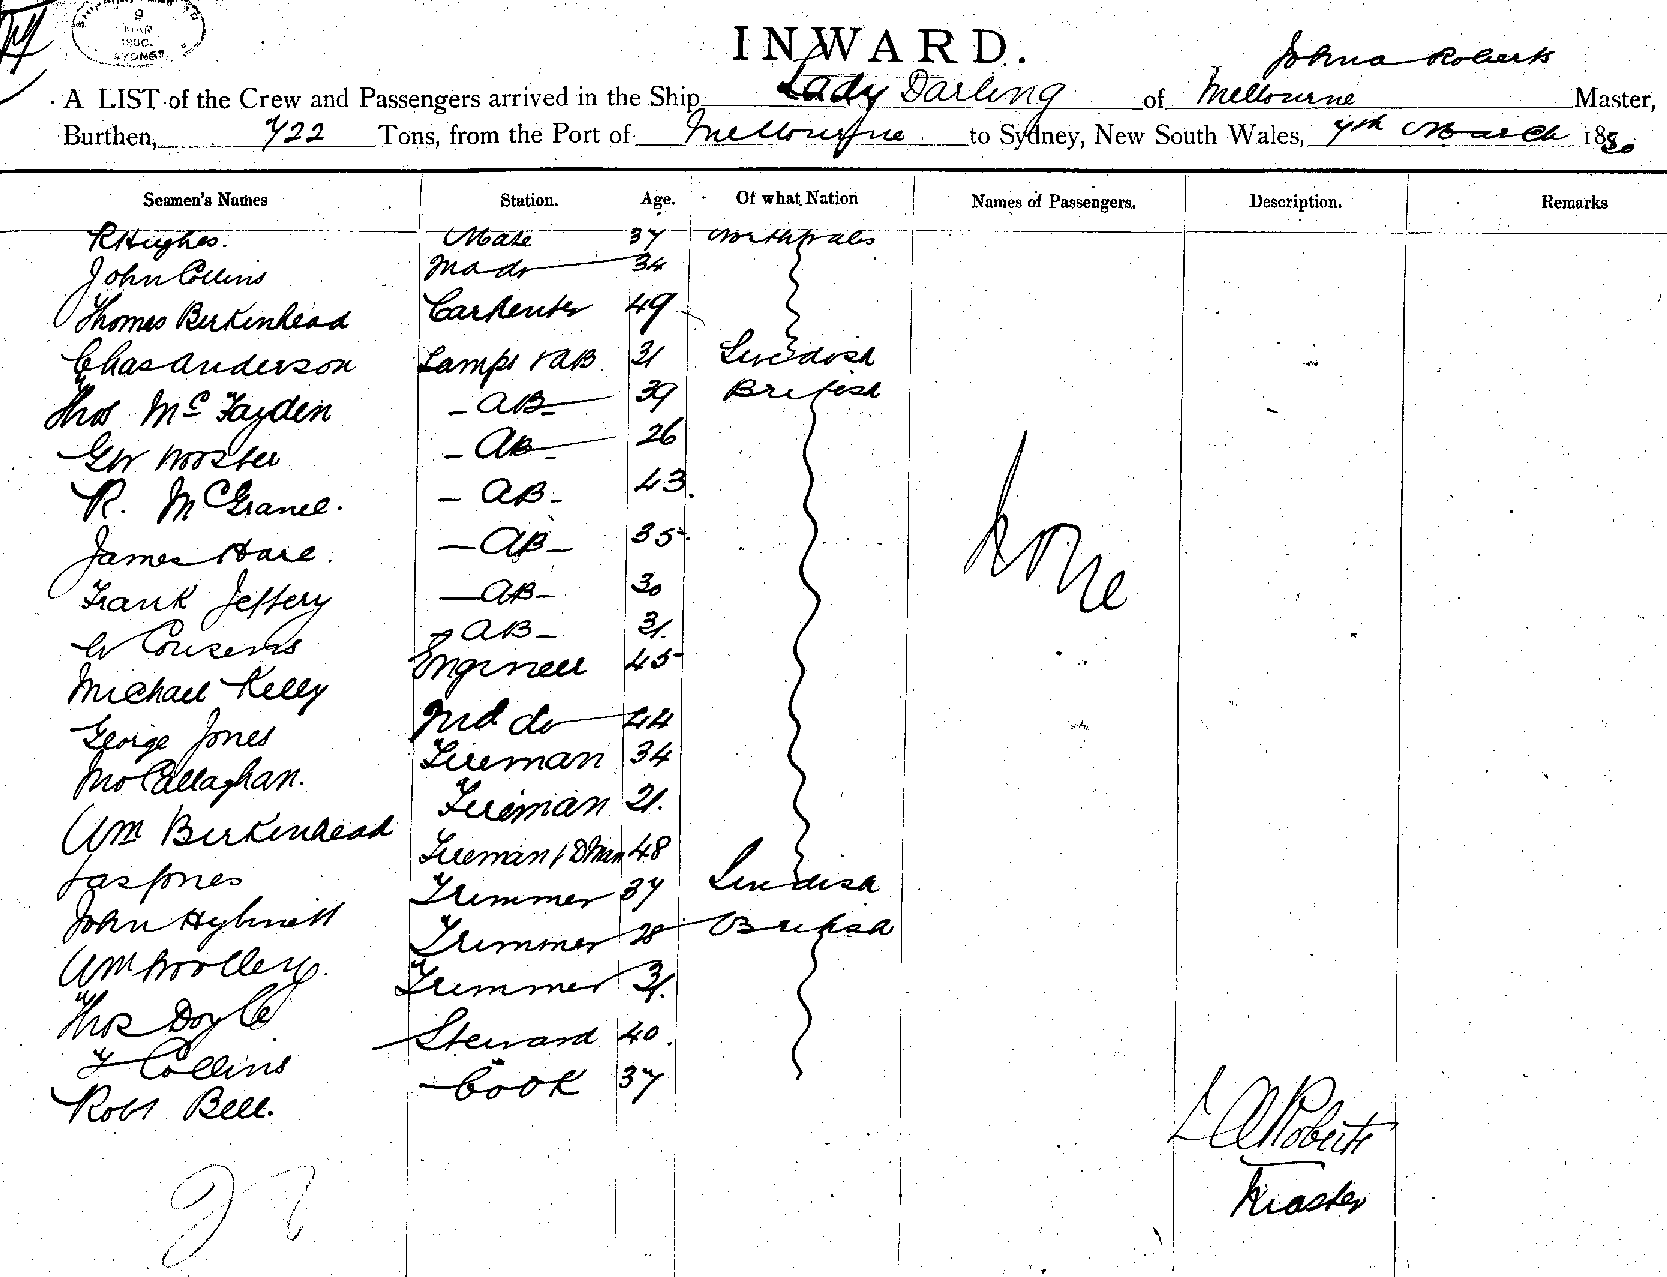 9
MAR
1880
SYDNEY
INWARD.
John a Roberts
A LIST of the Crew and Passengers arrived in the Ship Lady Darling of Melbourne Master,
Burthen, 722 Tons, from the Port of Melbourne to Sydney, New South Wales, 7th March 1880
Seamen's Names Station. Age. Of what Nation Names of Passengers. Description. Remarks
R Hughes. Mate 37 North Wales
John Collins 2nd do 34
Thomas Birkenhead Carpenter 49
Chas Anderson Lamps & AB 31 Swedish
Thos McFayden AB 39 British
GW Worster AB 26
R. McGranel. AB 43
James Hare. AB 35
Frank Jeffery AB 30
W Cousens AB 31
Michael Kelly Engineer 45
George Jones 2nd do 44
Jno Callaghan. Fireman 34
Wm Birkenhead Fireman 21
Jas Jones Fireman & DMan 48
John Trimmer 37 Swedish
Wm Woolley Trimmer 28 British
Thos Doyle Trimmer 31
F Collins Steward 40
Robt Bell. Cook 37
None
J A Roberts
Master